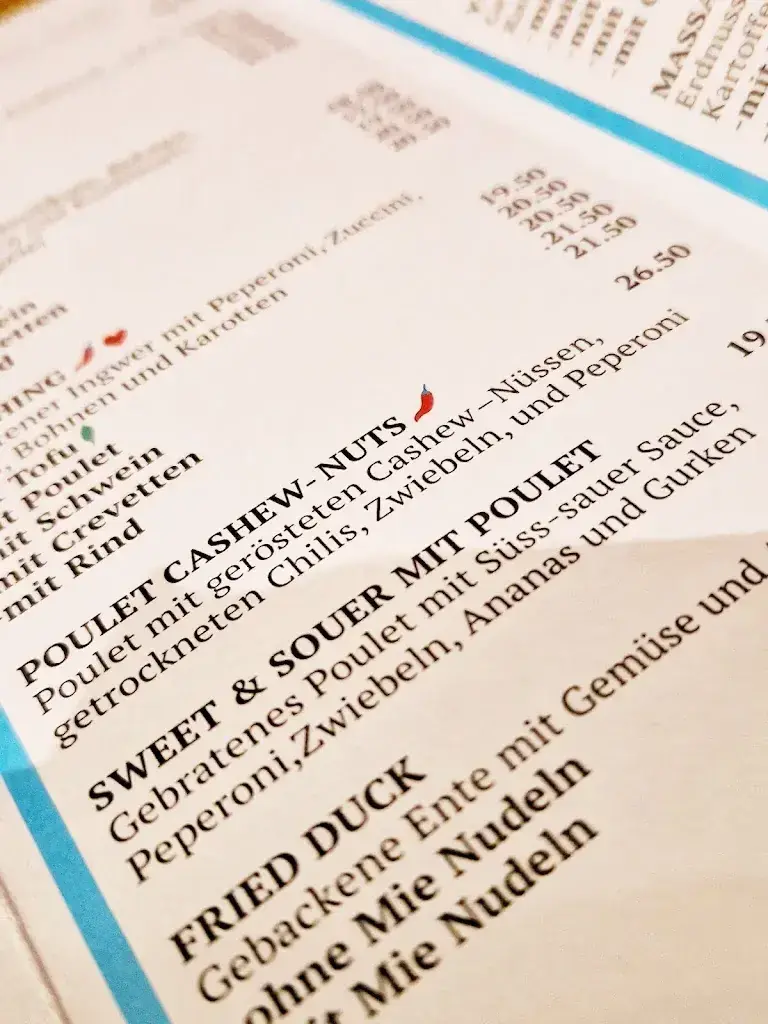 MASSA
Erdnuss
Kartoffe
-mit
-mit
-mit
-mit
19.50
20.50
20.50
21.50
21.50
HING
ener Ingwer mit Peperoni, Zuccini,
, Bohnen und Karotten
Tofu
t Poulet
mit Schwein
mit Crevetten
-mit Rind
POULET CASHEW-NUTS 26.50
Poulet mit gerösteten Cashew-Nüssen,
getrockneten Chilis, Zwiebeln, und Peperoni
SWEET & SOUER MIT POULET 19.
Gebratenes Poulet mit Süss-sauer Sauce,
Peperoni,Zwiebeln, Ananas und Gurken
FRIED DUCK
Gebackene Ente mit Gemüse und
ohne Mie Nudeln
it Mie Nudeln